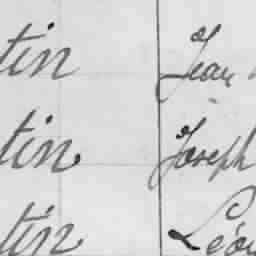 tin Jean
tin Joseph
tin Léon